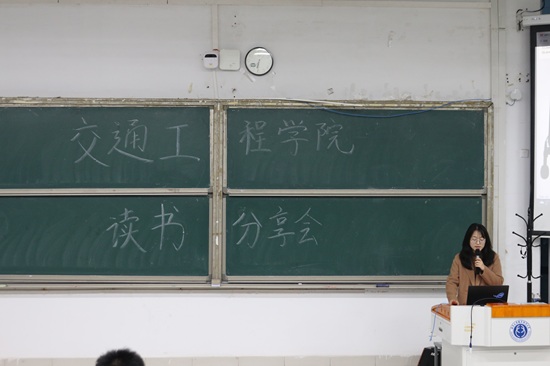 交通工程学院
读书分享会